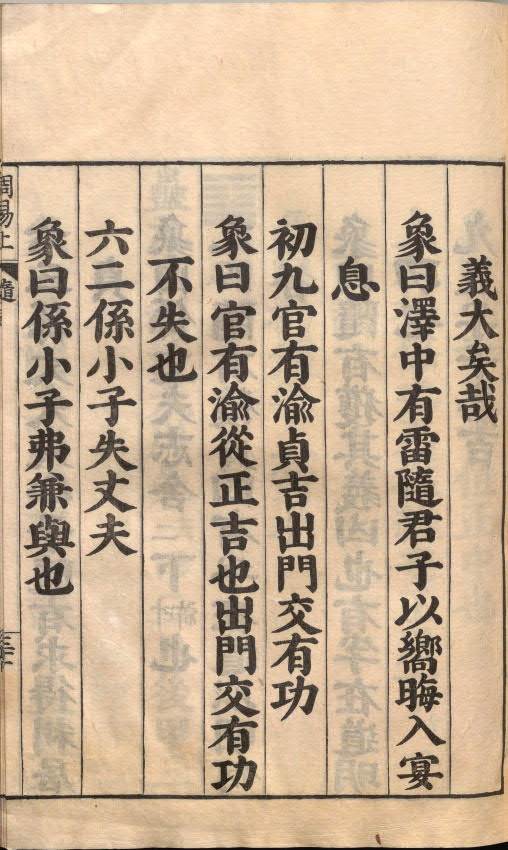 義大矣哉
象曰澤中有雷隨君子以嚮晦入宴
息
初九官有渝貞吉出門交有功
象曰官有渝從正吉也出門交有功
不失也
六二係小子失丈夫
象曰係小子弗兼與也
周易上
隨